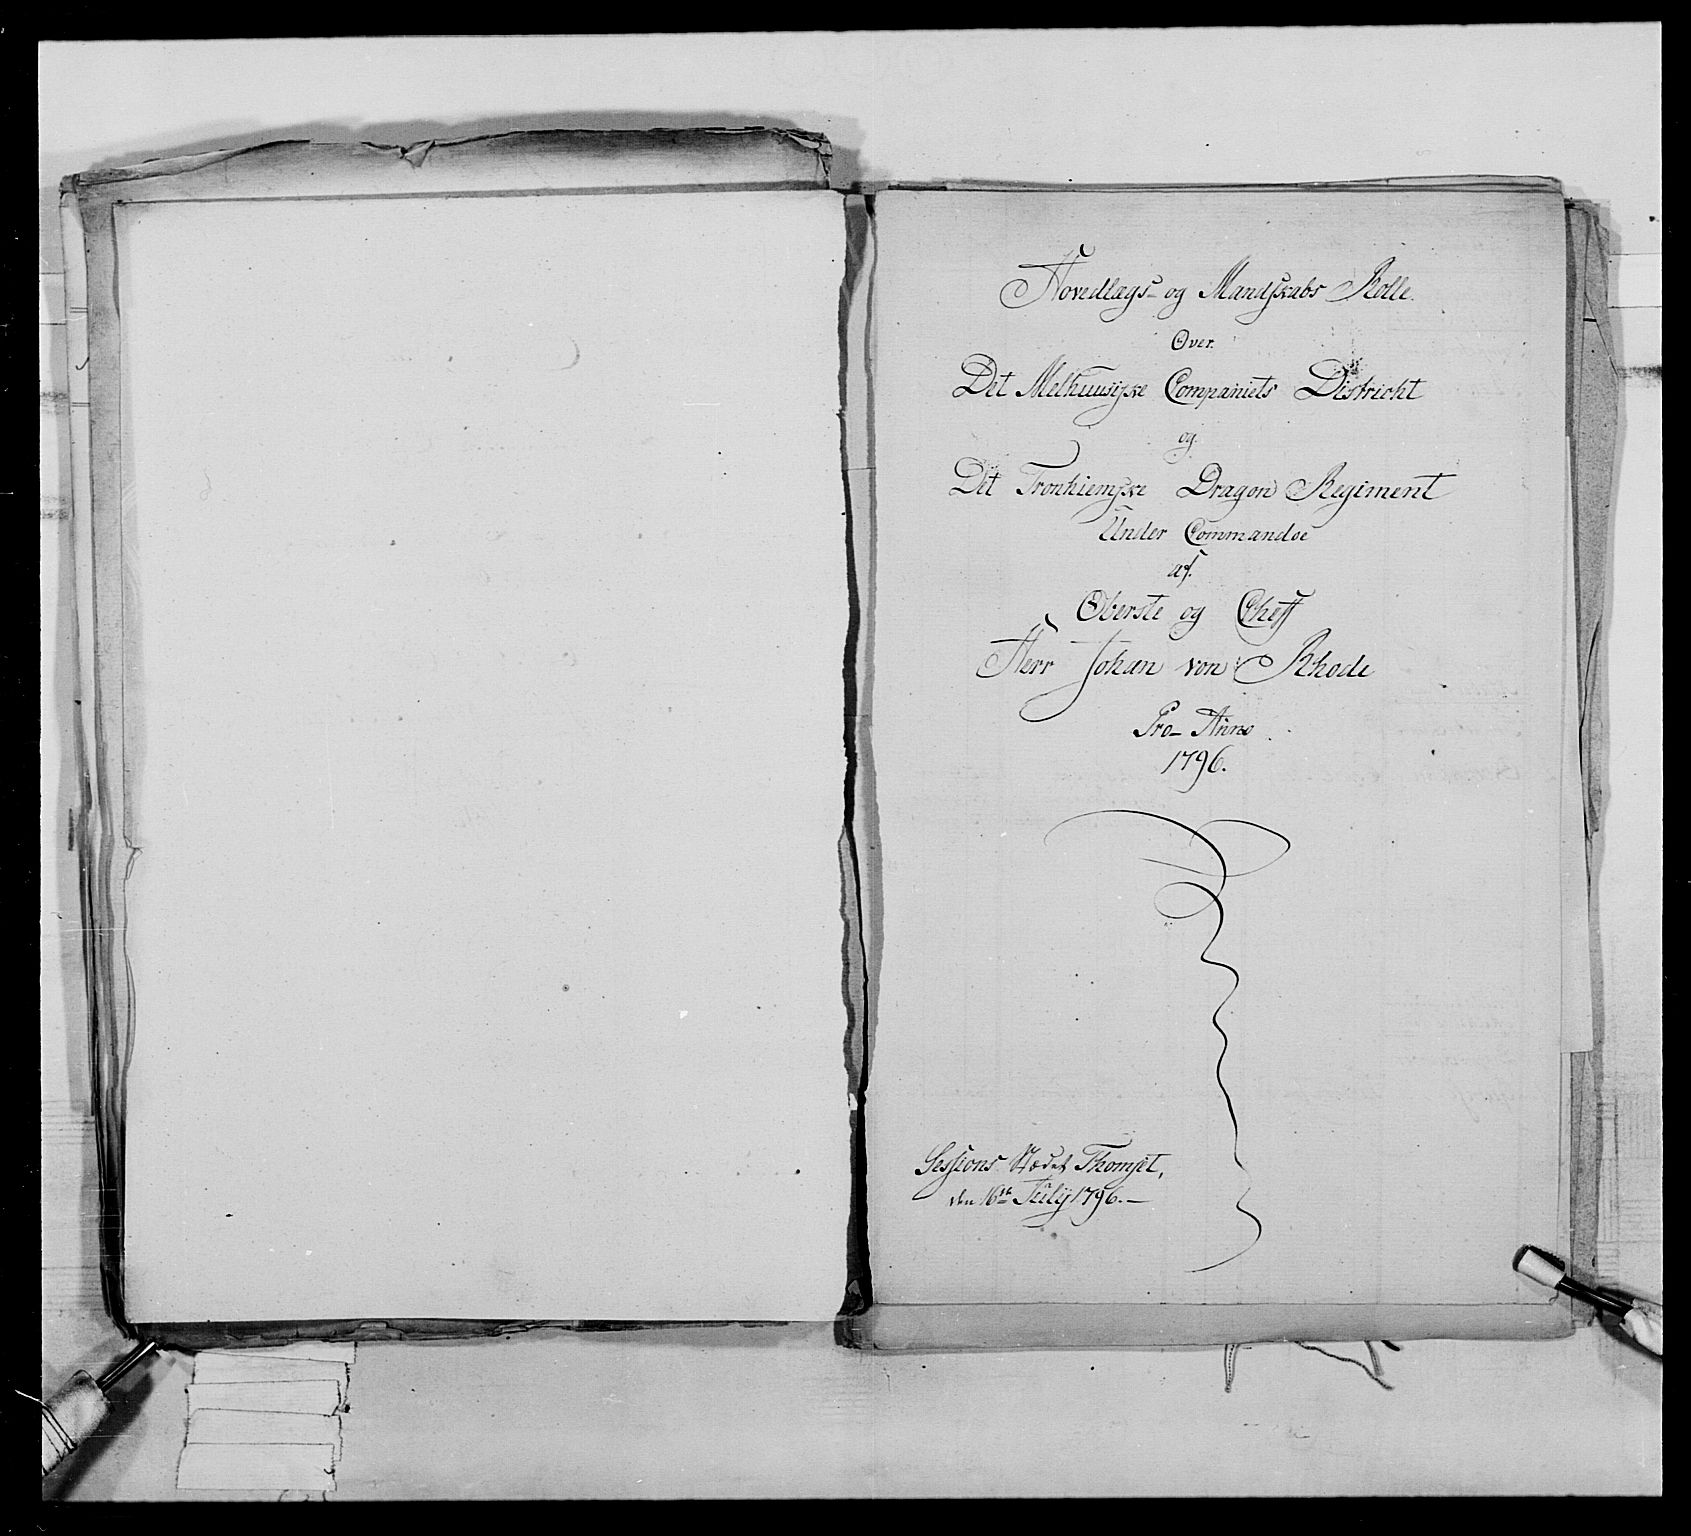 Hovedlægs- og Mandskabs Rolle.
Over.
Det Melhuusiske Companiets District
og.
Det Tronhiemske Dragon Regiment
Under Commandoe
af.
Oberste og Cheff
Herr Johan von Rhode
Pro- Anno
1796.
Sessions Stædet Thomset,
den 16de Julij 1796.—